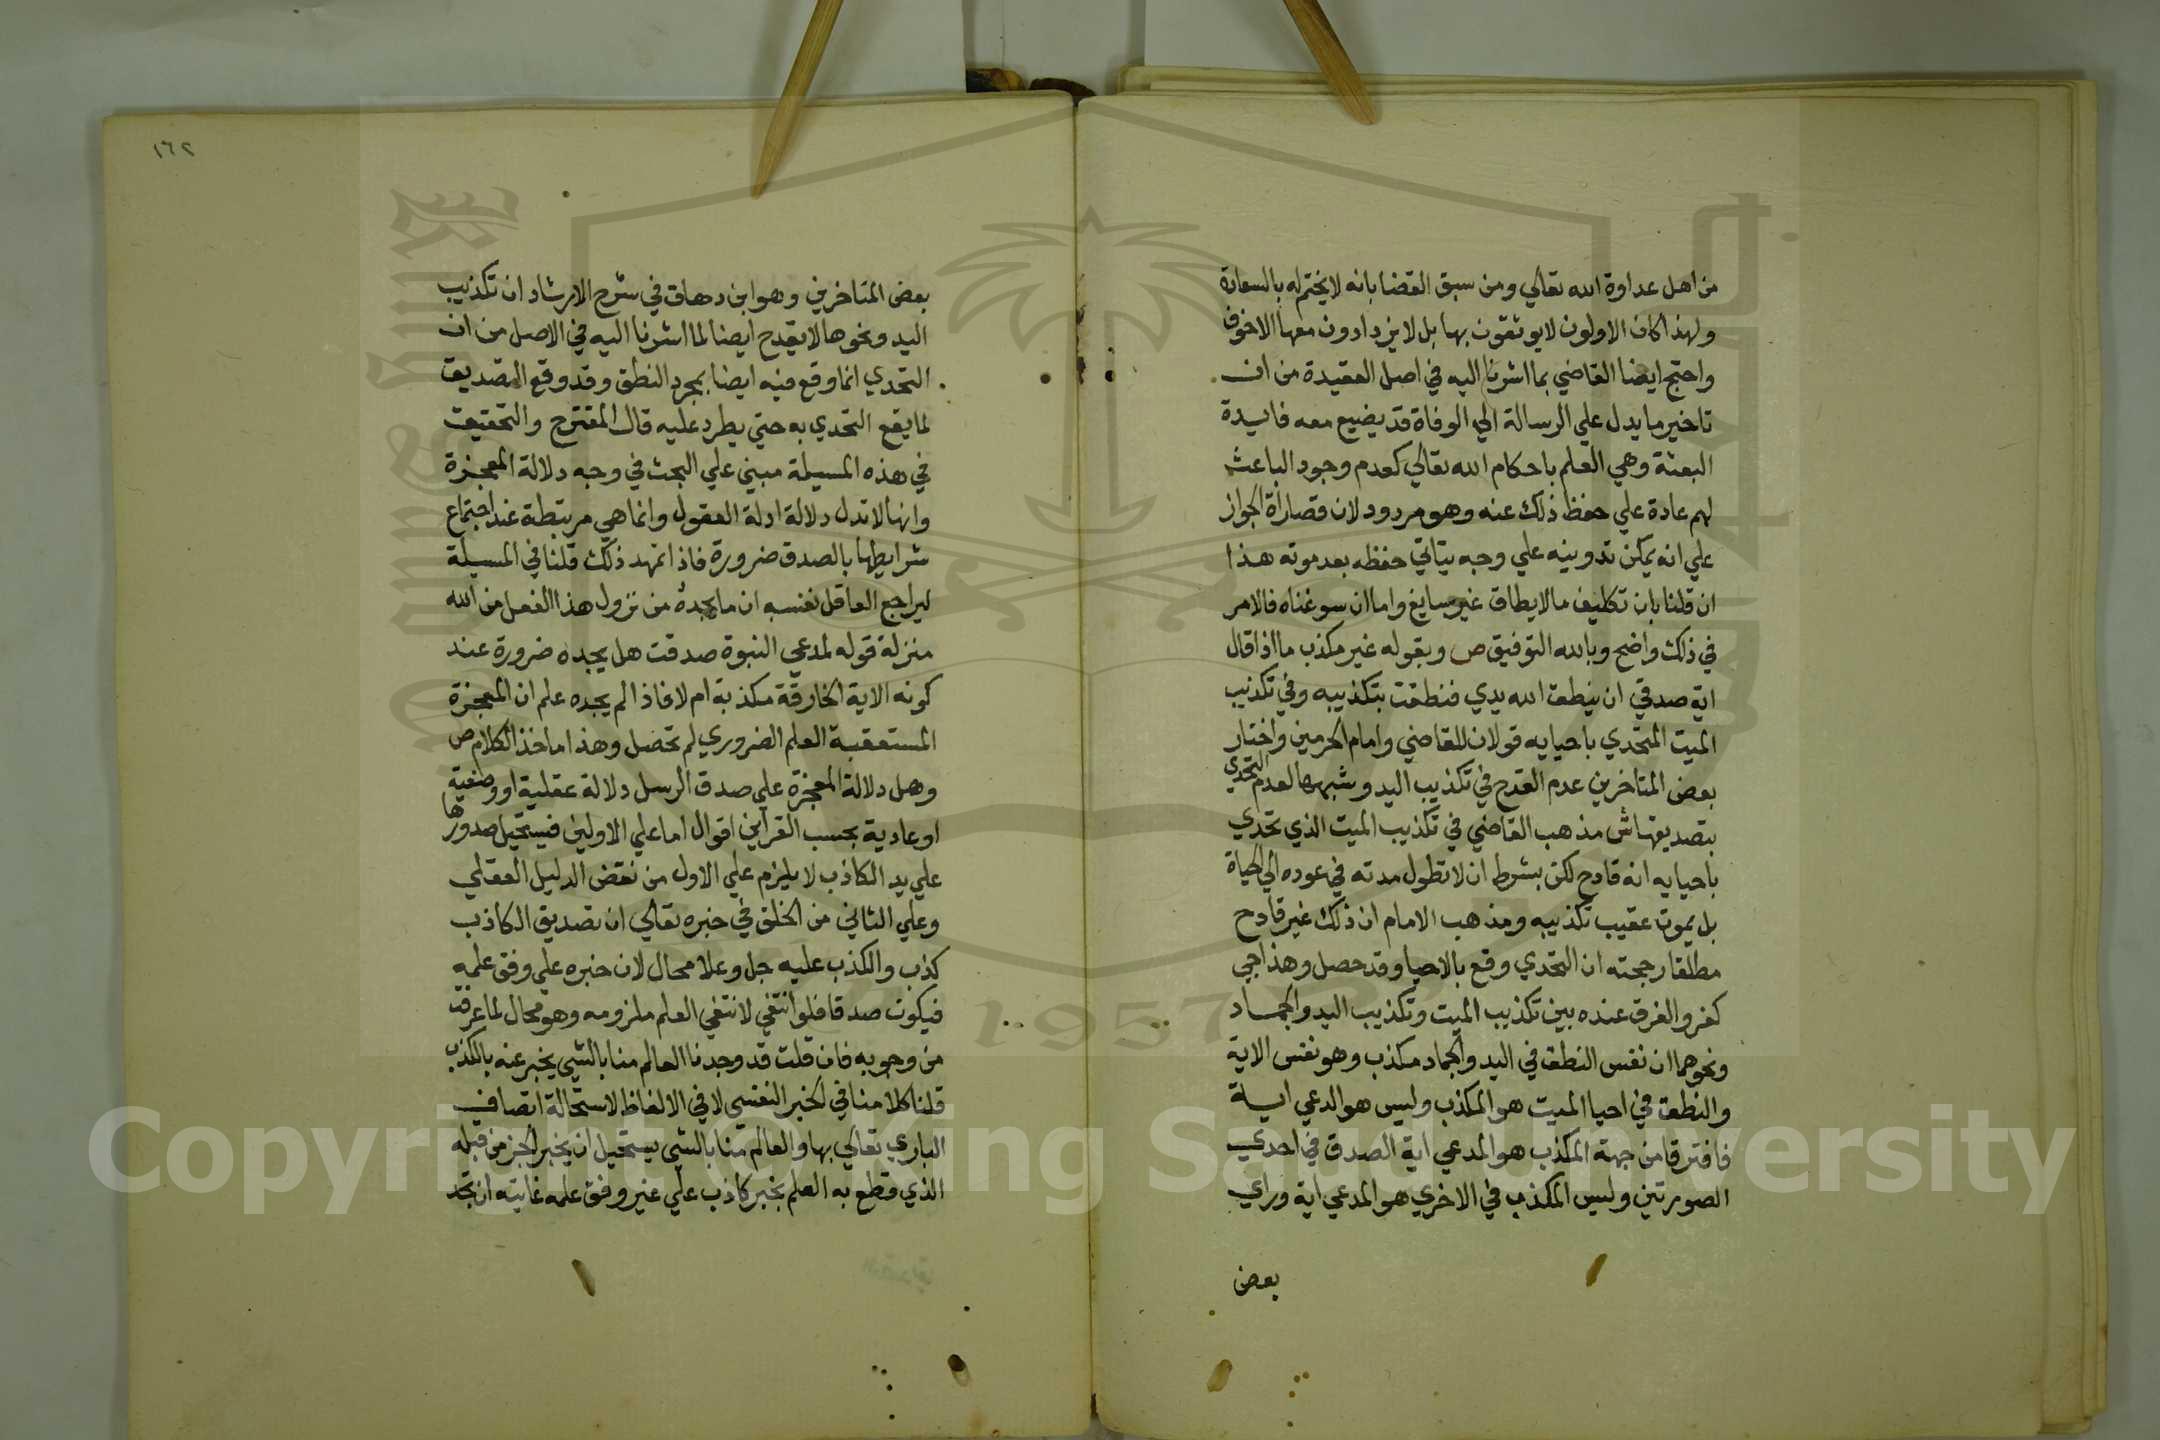 من اهل عداوة الله تعالي ومن سبق القضا بانه لا يختم له بالسعادة
ولهذا كان الاولون لا يوثقون بها بل لا يزدادون معها الا خوفا
واحتج ايضا القاضي بما اشرنا اليه في اصل العقيدة من ان
تاخير ما يدل علي الرسالة الي الوفاة قد يضيع معه فايدة
البعثة وهي العلم باحكام الله تعالي كعدم وجود الباعث
لهم عادة علي حفظ ذلك عنه وهو مردود لان قصاراة الجواز
علي انه يمكن تدوينه علي وجه يتاتي حفظه بعد موته هذا
ان قلنا بان تكليف ما لا يطاق غير سايغ واما ان سوغناه فالامر
في ذلك واضح وبالله التوفيق ص وبقوله غير مكذب ما اذا قال
اية صدقي ان ينطق الله يدي فنطقت بتكذيبه وفي تكذيب
الميت المتحدي باحيايه قولان للقاضي وامام الحرمين واختار
بعض المتاخرين عدم القدح في تكذيب اليد وشبهها لعدم التحدي
بتصديقها ش مذهب القاضي في تكذيب الميت الذي تحدي
باحيايه انه قادح لكن بشرط ان لا تطول مدته في عوده الي الحياة
بل يموت عقيب تكذيبه ومذهب الامام ان ذلك غير قادح
مطلقا رجحته ان التحدي وقع بالاحيا وقد حصل وهذا حي
كفر والفرق عنده بين تكذيب الميت وتكذيب اليد والجماد
ونحوهما ان نفس النطق في اليد والجماد مكذب وهو نفس الاية
والنطق في احيا الميت هو المكذب وليس هو الدعي اية
فافترقا من جهة المكذب هو المدعي اية الصدق في احدي
الصورتين وليس المكذب في الاخري هو المدعي اية وراي
بعض
١٦٢
بعض المتاخرين وهو ابن دهاق في شرح الارشاد ان تكذيب
اليد ونحوها لا يقدح ايضا لما اشرنا اليه في الاصل من ان
التحدي انما وقع فيه ايضا بمجرد النطق وقد وقع التصديق
لما يقع التحدي به حتي يطرد عليه قال المقترح والتحقيق
في هذه المسيلة مبني علي البحث في وجه دلالة المعجزة
وانها لا تدل دلالة ادلة العقول وانما هي مرتبطة عند اجتماع
شرايطها بالصدق ضرورة فاذا تمهد ذلك قلنا في المسيلة
ليراجع العاقل نفسه ان ما يجده من نزول هذا الفعل من الله
منزلة قوله لمدعي النبوة صدقت هل يجده ضرورة عند
كونه الاية الخارقة مكذبة ام لا فاذا لم يجده علم ان المعجزة
المستعقبة العلم الضروري لم تحصل وهذا ماخذ الكلام ص
وهل دلالة المعجزة علي صدق الرسل دلالة عقلية او وضعية
او عادية بحسب القراين اقوال اما علي الاولين فيستحيل صدورها
علي يد الكاذب لا يلزم علي الاول من نقض الدليل العقلي
وعلي الثاني من الخلق في خبره تعالي ان تصديق الكاذب
كذب والكذب عليه جل وعلا محال لان خبره علي وفق علمه
فيكون صدقا فلو انتفي لانتفي العلم ملزومه وهو محال لما عرفت
من وجوبه فان قلت قد وجدنا العالم منا بالشي يخبر عنه بالكذب
قلنا كلامنا في الخبر النفسي لا في الالفاظ لاستحالة اتصاف
الباري تعالي بها والعالم منا بالشي يستحيل ان يخبر الجز من قلبه
الذي قطع به العلم بخبر كاذب علي غير وفق علمه غايته ان يجد